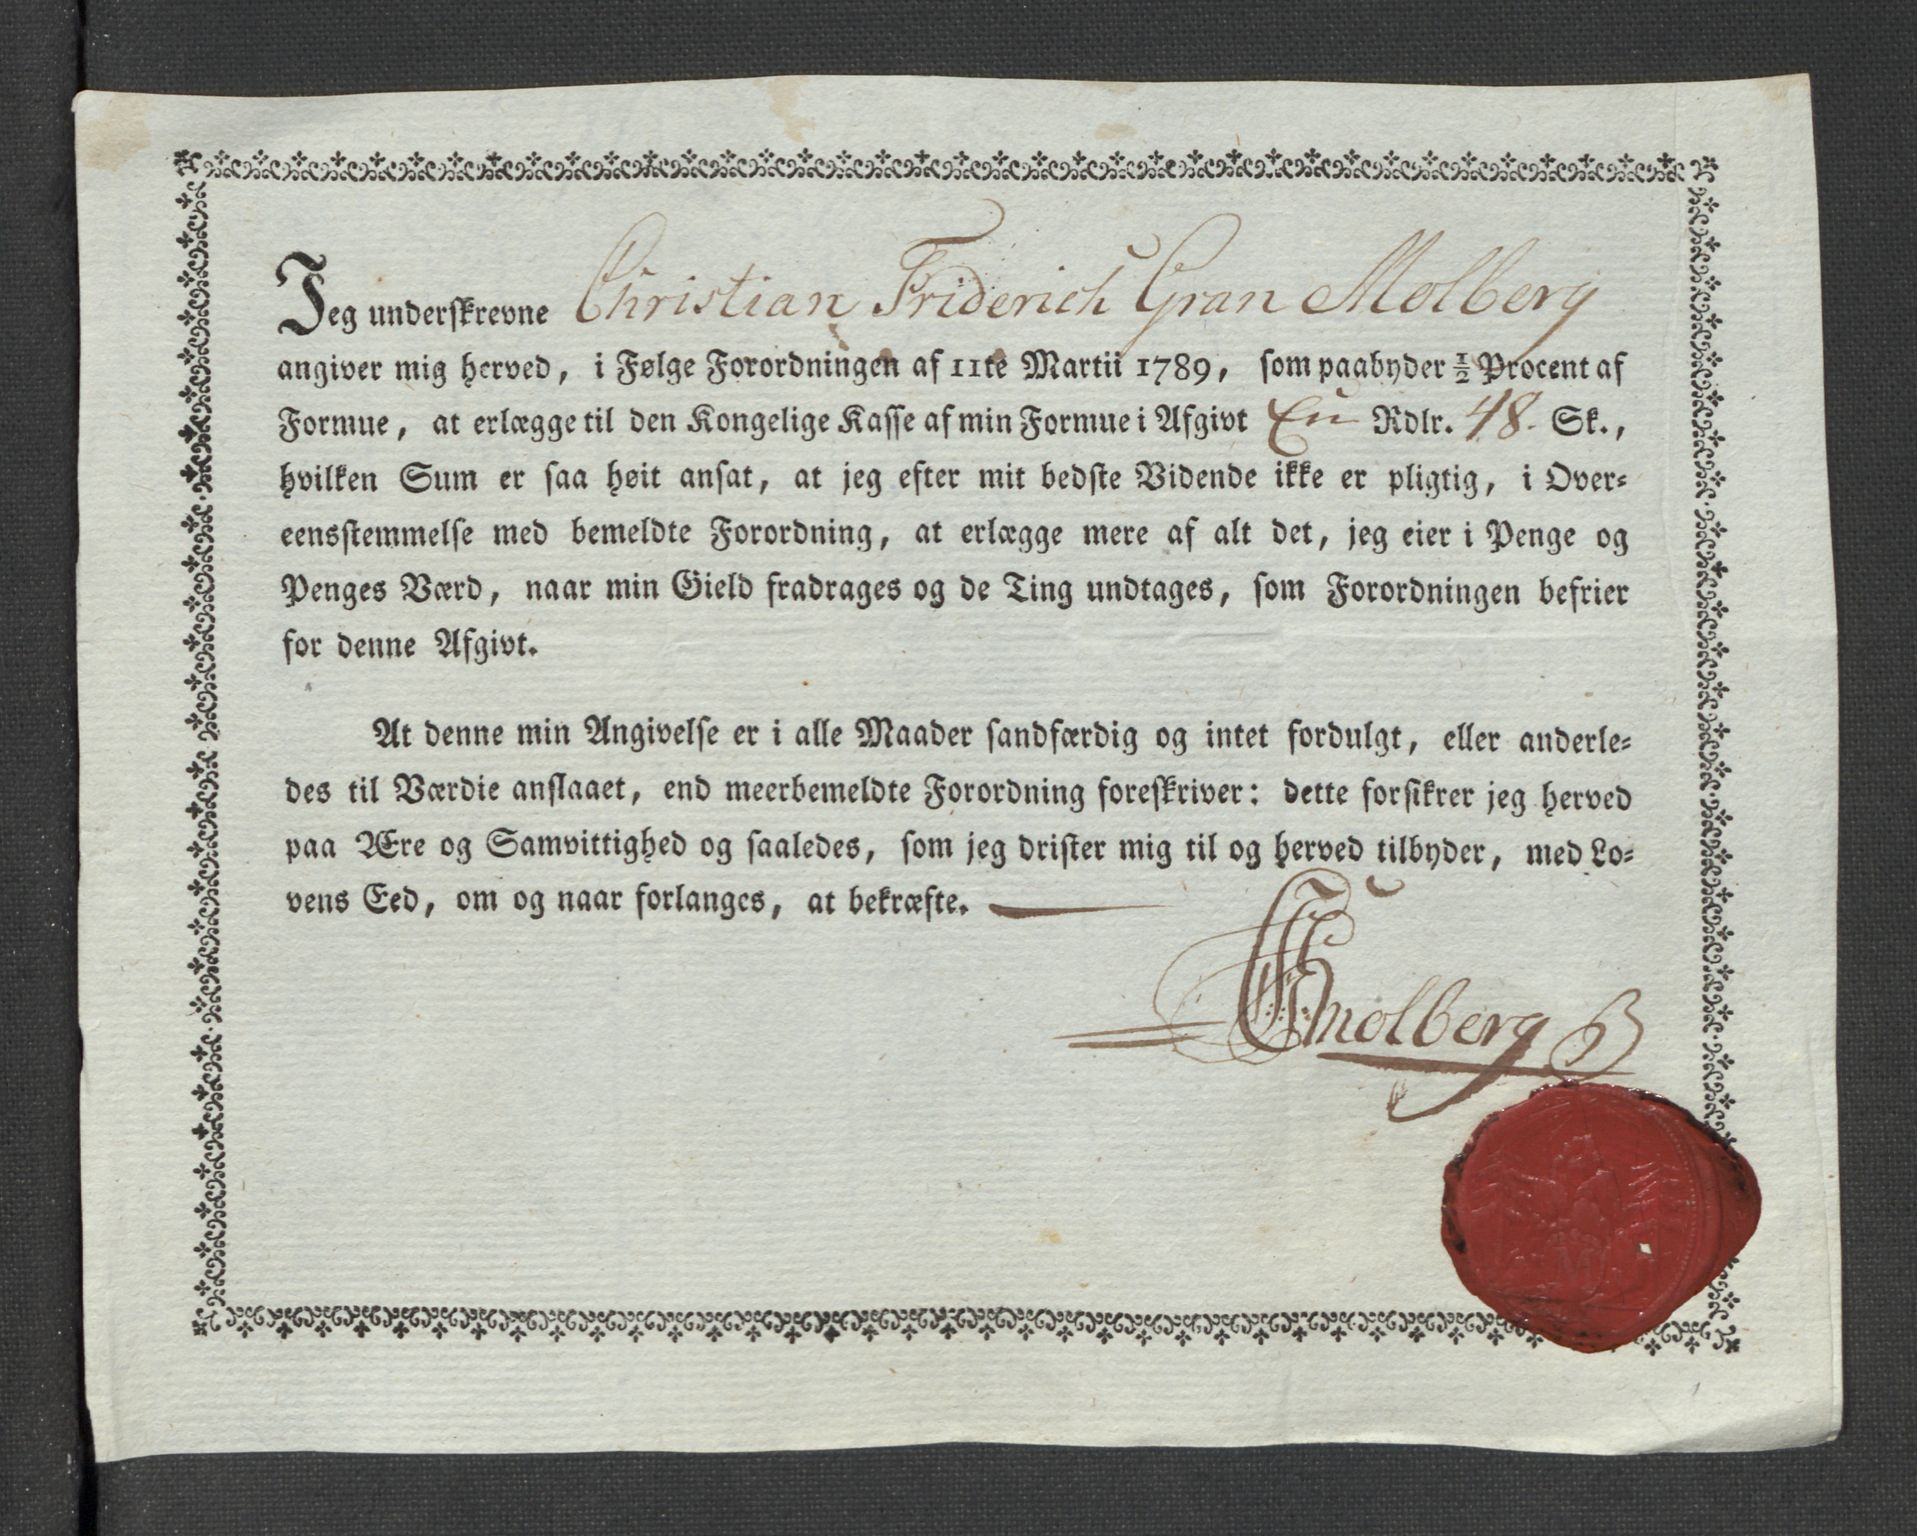 Jeg underskrevne Christian Friderich Gran Molberg
angiver mig herved, i Følge Forordningen af 11te Martii 1789, som paabyder ½ Procent af
Formue, at erlægge til den Kongelige Kasse af min Formue i Afgivt En Rdlr. 48. Sk.,
hvilken Sum er saa høit ansat, at jeg efter mit bedste Vidende ikke er pligtig, i Over-
eensstemmelse med bemeldte Forordning, at erlægge mere af alt det, jeg eier i Penge og
Penges Værd, naar min Gield fradrages og de Ting undtages, som Forordningen befrier
for denne Afgivt.
At denne min Angivelse er i alle Maader sandfærdig og intet fordulgt, eller anderle-
des til Værdie anslaaet, end meerbemeldte Forordning foreskriver: dette forsikrer jeg herved
paa Ære og Samvittighed og saaledes, som jeg drister mig til og herved tilbyder, med Lo-
vens Eed, om og naar forlanges, at bekræfte.
CFGmolberg
M